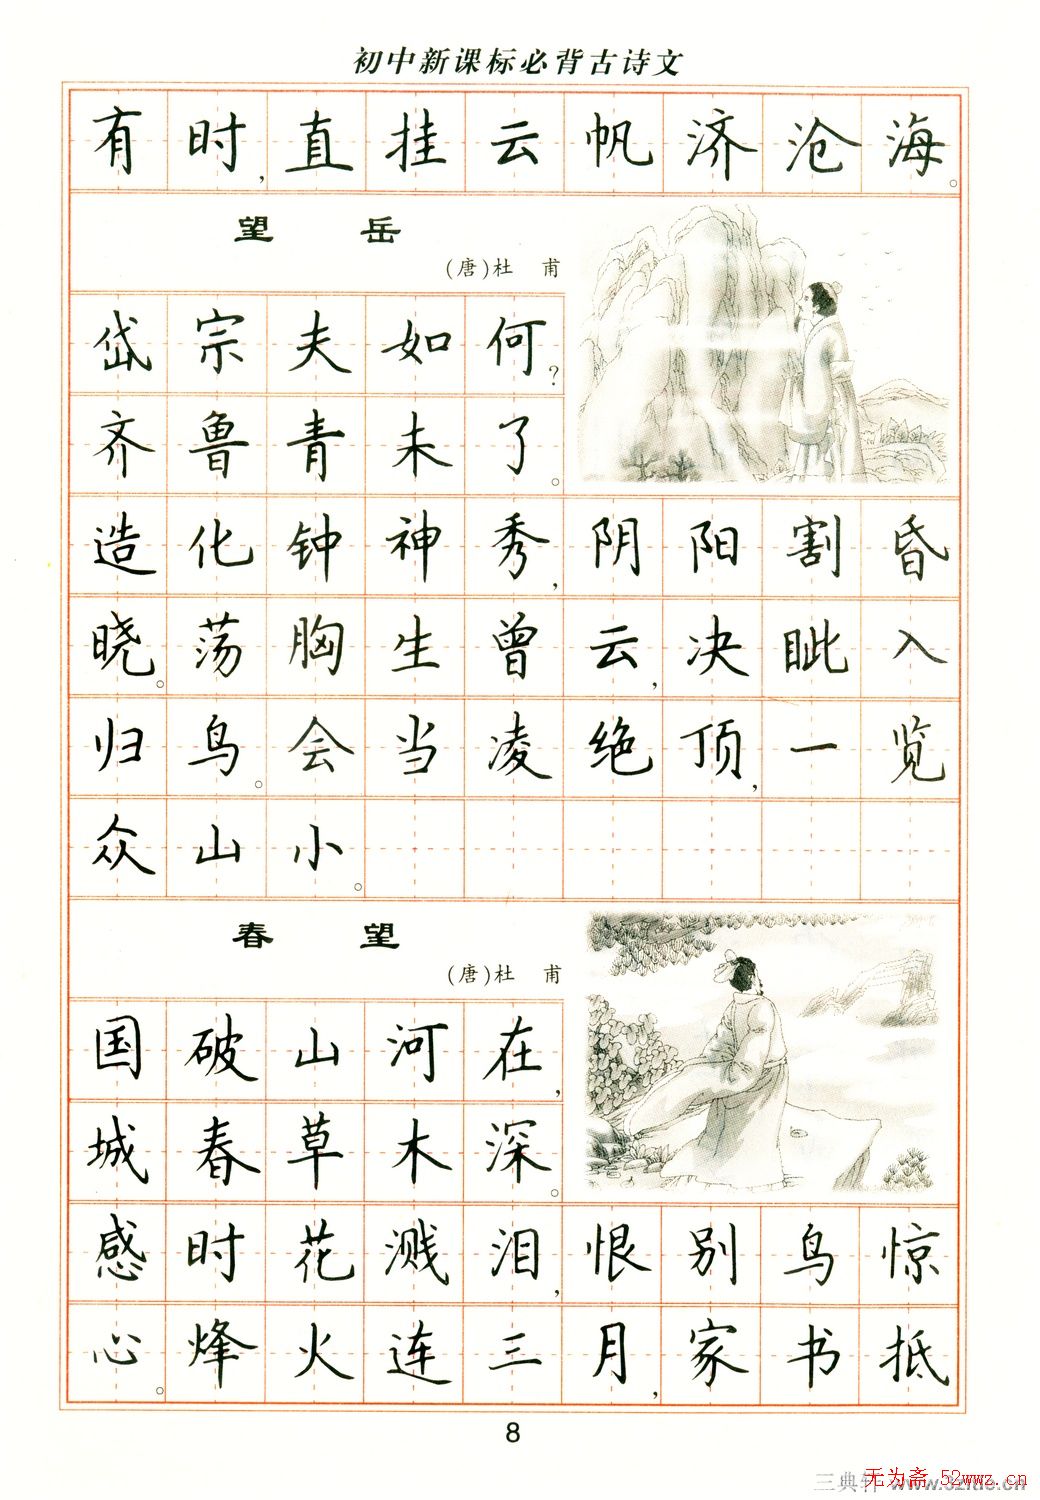 初中新课标必背古诗文
有时，直挂云帆济沧海。
望 岳
(唐)杜 甫
岱宗夫如何？
齐鲁青未了。
造化钟神秀，阴阳割昏
晓。荡胸生曾云，决眦入
归鸟。会当凌绝顶，一览
众山小。
春 望
(唐)杜 甫
国破山河在，
城春草木深。
感时花溅泪，恨别鸟惊
心。烽火连三月，家书抵
8
无为斋 52wwz.cn